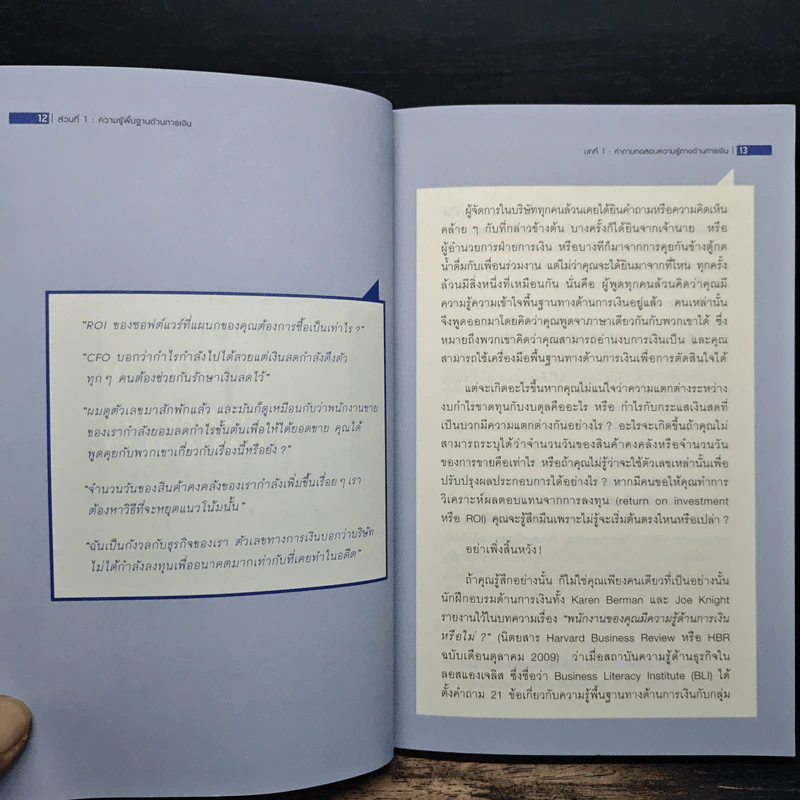 12 | ส่วนที่ 1 : ความรู้พื้นฐานด้านการเงิน
"ROI ของซอฟต์แวร์ที่แผนกของคุณต้องการซื้อเป็นเท่าไร ?"
"CFO บอกว่ากำไรกำลังไปได้สวยแต่เงินสดกำลังตึงตัว
ทุก ๆ คนต้องช่วยกันรักษาเงินสดไว้"
"ผมดูตัวเลขมาสักพักแล้ว และมันก็ดูเหมือนกับว่าพนักงานขาย
ของเรากำลังยอมลดกำไรขั้นต้นเพื่อให้ได้ยอดขาย คุณได้
พูดคุยกับพวกเขาเกี่ยวกับเรื่องนี้หรือยัง ?"
"จำนวนวันของสินค้าคงคลังของเรากำลังเพิ่มขึ้นเรื่อย ๆ เรา
ต้องหาวิธีที่จะหยุดแนวโน้มนั้น"
"ฉันเป็นกังวลกับธุรกิจของเรา ตัวเลขทางการเงินบอกว่าบริษัท
ไม่ได้กำลังลงทุนเพื่ออนาคตมากเท่ากับที่เคยทำในอดีต"
บทที่ 1 : คำถามทดสอบความรู้ทางด้านการเงิน | 13
ผู้จัดการในบริษัททุกคนล้วนเคยได้ยินคำถามหรือความคิดเห็น
คล้าย ๆ กับที่กล่าวข้างต้น บางครั้งก็ได้ยินจากเจ้านาย หรือ
ผู้อำนวยการฝ่ายการเงิน หรือบางทีก็มาจากการคุยกันข้างตู้กด
น้ำดื่มกับเพื่อนร่วมงาน แต่ไม่ว่าคุณจะได้ยินมาจากที่ไหน ทุกครั้ง
ล้วนมีสิ่งหนึ่งที่เหมือนกัน นั่นคือ ผู้พูดทุกคนล้วนคิดว่าคุณมี
ความรู้ความเข้าใจพื้นฐานทางด้านการเงินอยู่แล้ว คนเหล่านั้น
จึงพูดออกมาโดยคิดว่าคุณพูดจาภาษาเดียวกันกับพวกเขาได้ ซึ่ง
หมายถึงพวกเขาคิดว่าคุณสามารถอ่านงบการเงินเป็น และคุณ
สามารถใช้เครื่องมือพื้นฐานทางด้านการเงินเพื่อการตัดสินใจได้
แต่จะเกิดอะไรขึ้นหากคุณไม่แน่ใจว่าความแตกต่างระหว่าง
งบกำไรขาดทุนกับงบดุลคืออะไร หรือ กำไรกับกระแสเงินสดที่
เป็นบวกมีความแตกต่างกันอย่างไร ? อะไรจะเกิดขึ้นถ้าคุณไม่
สามารถระบุได้ว่าจำนวนวันของสินค้าคงคลังหรือจำนวนวัน
ของการขายคือเท่าไร หรือถ้าคุณไม่รู้ว่าจะใช้ตัวเลขเหล่านั้นเพื่อ
ปรับปรุงผลประกอบการได้อย่างไร ? หากมีคนขอให้คุณทำการ
วิเคราะห์ผลตอบแทนจากการลงทุน (return on investment
หรือ ROI) คุณจะรู้สึกมึนเพราะไม่รู้จะเริ่มต้นตรงไหนหรือเปล่า ?
อย่าเพิ่งสิ้นหวัง !
ถ้าคุณรู้สึกอย่างนั้น ก็ไม่ใช่คุณเพียงคนเดียวที่เป็นอย่างนั้น
นักฝึกอบรมด้านการเงินทั้ง Karen Berman และ Joe Knight
รายงานไว้ในบทความเรื่อง "พนักงานของคุณมีความรู้ด้านการเงิน
หรือไม่ ?" (นิตยสาร Harvard Business Review หรือ HBR
ฉบับเดือนตุลาคม 2009) ว่าเมื่อสถาบันความรู้ด้านธุรกิจใน
ลอสแองเจลิส ซึ่งชื่อว่า Business Literacy Institute (BLI) ได้
ตั้งคำถาม 21 ข้อเกี่ยวกับความรู้พื้นฐานทางด้านการเงินกับกลุ่ม